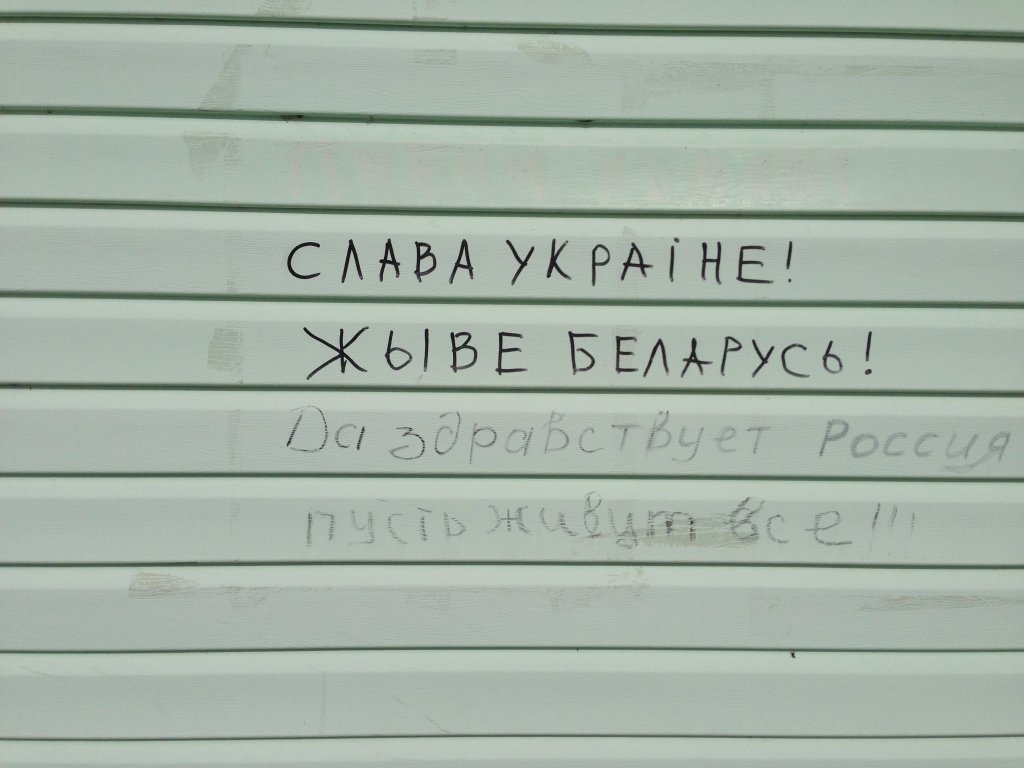 СЛАВА УКРАїНЕ!
ЖЫВЕ БЕЛАРУСЬ!
Да здравствует Россия
пусть живут все!!!